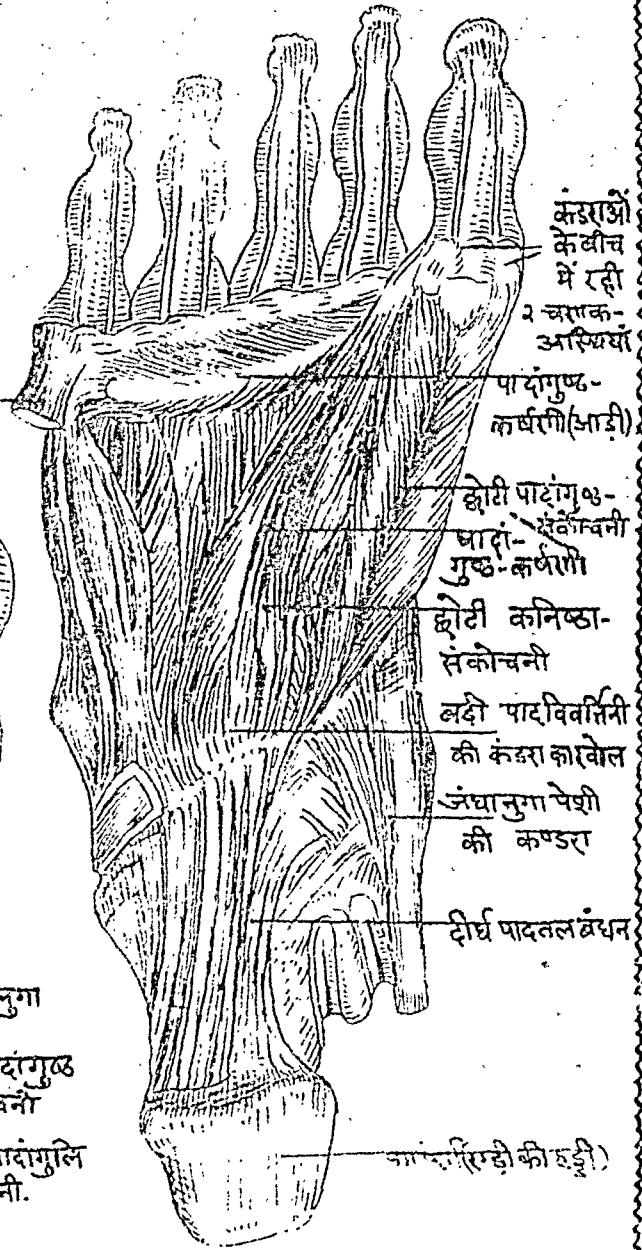 कंडराओं
के बीच
में रही
२ चणक-
अस्थियां
पादांगुष्ठ-
कर्षणी(आड़ी)
छोटी पादांगुष्ठ-
संकोचनी
पादां-
गुष्ठ-कर्षणी
छोटी कनिष्ठा-
संकोचनी
लंबी पादविवर्त्तिनी
की कंडरा का खोल
जंघानुगा पेशी
की कण्डरा
दीर्घ पादतल बंधन
नुगा
दांगुष्ठ
चनी
पादांगुलि
नी.
(एड़ी की हड्डी)